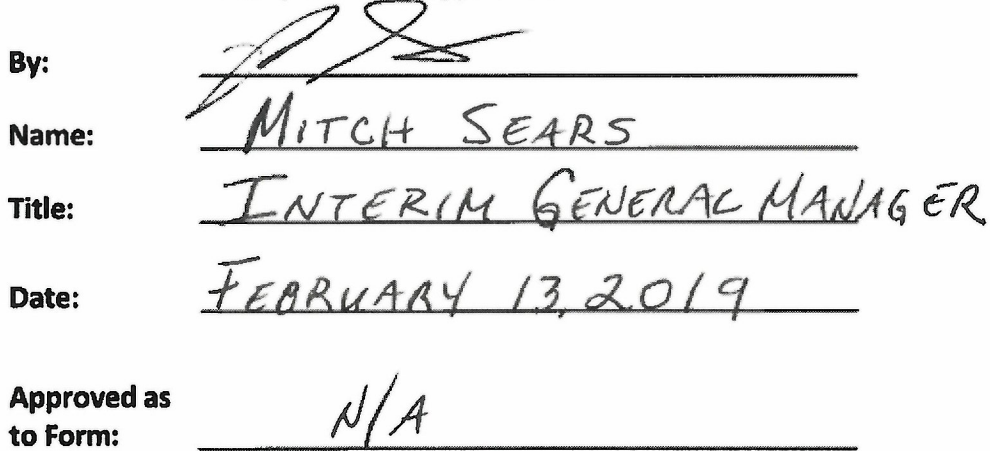 By:
Name: MITCH SEARS
Title: INTERIM GENERAL MANAGER
Date: FEBRUARY 13, 2019
Approved as
to Form: N/A